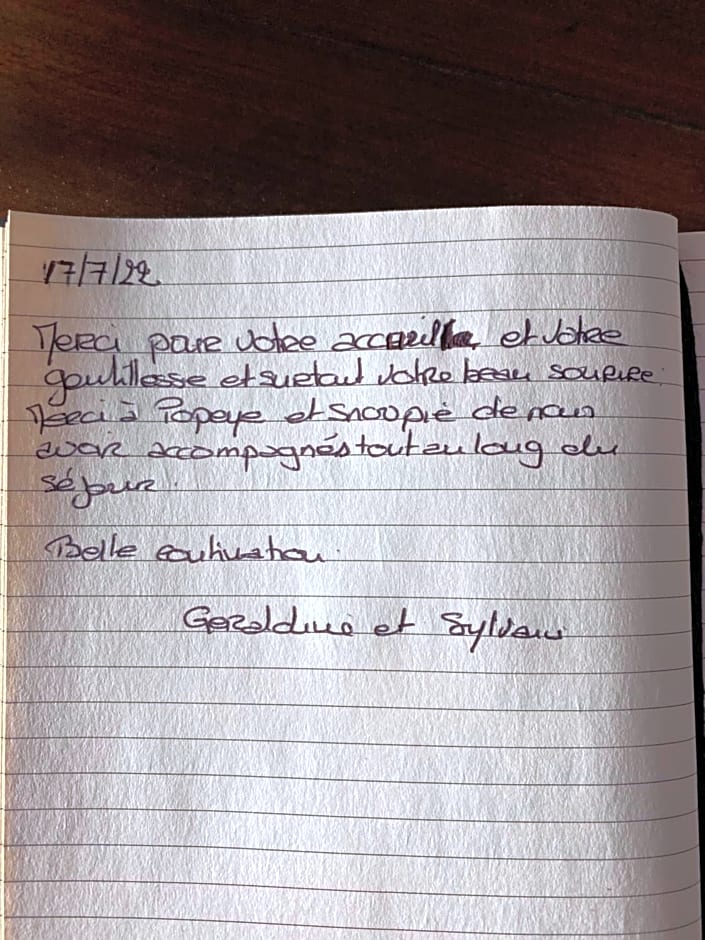 17/7/22
Merci pour votre accueil, et votre
gentillesse et surtout votre beau sourire.
Merci à Popeye et Snoopie de nous
avoir accompagnés tout au long du
séjour.
Belle continuation.
Geraldine et Sylvain